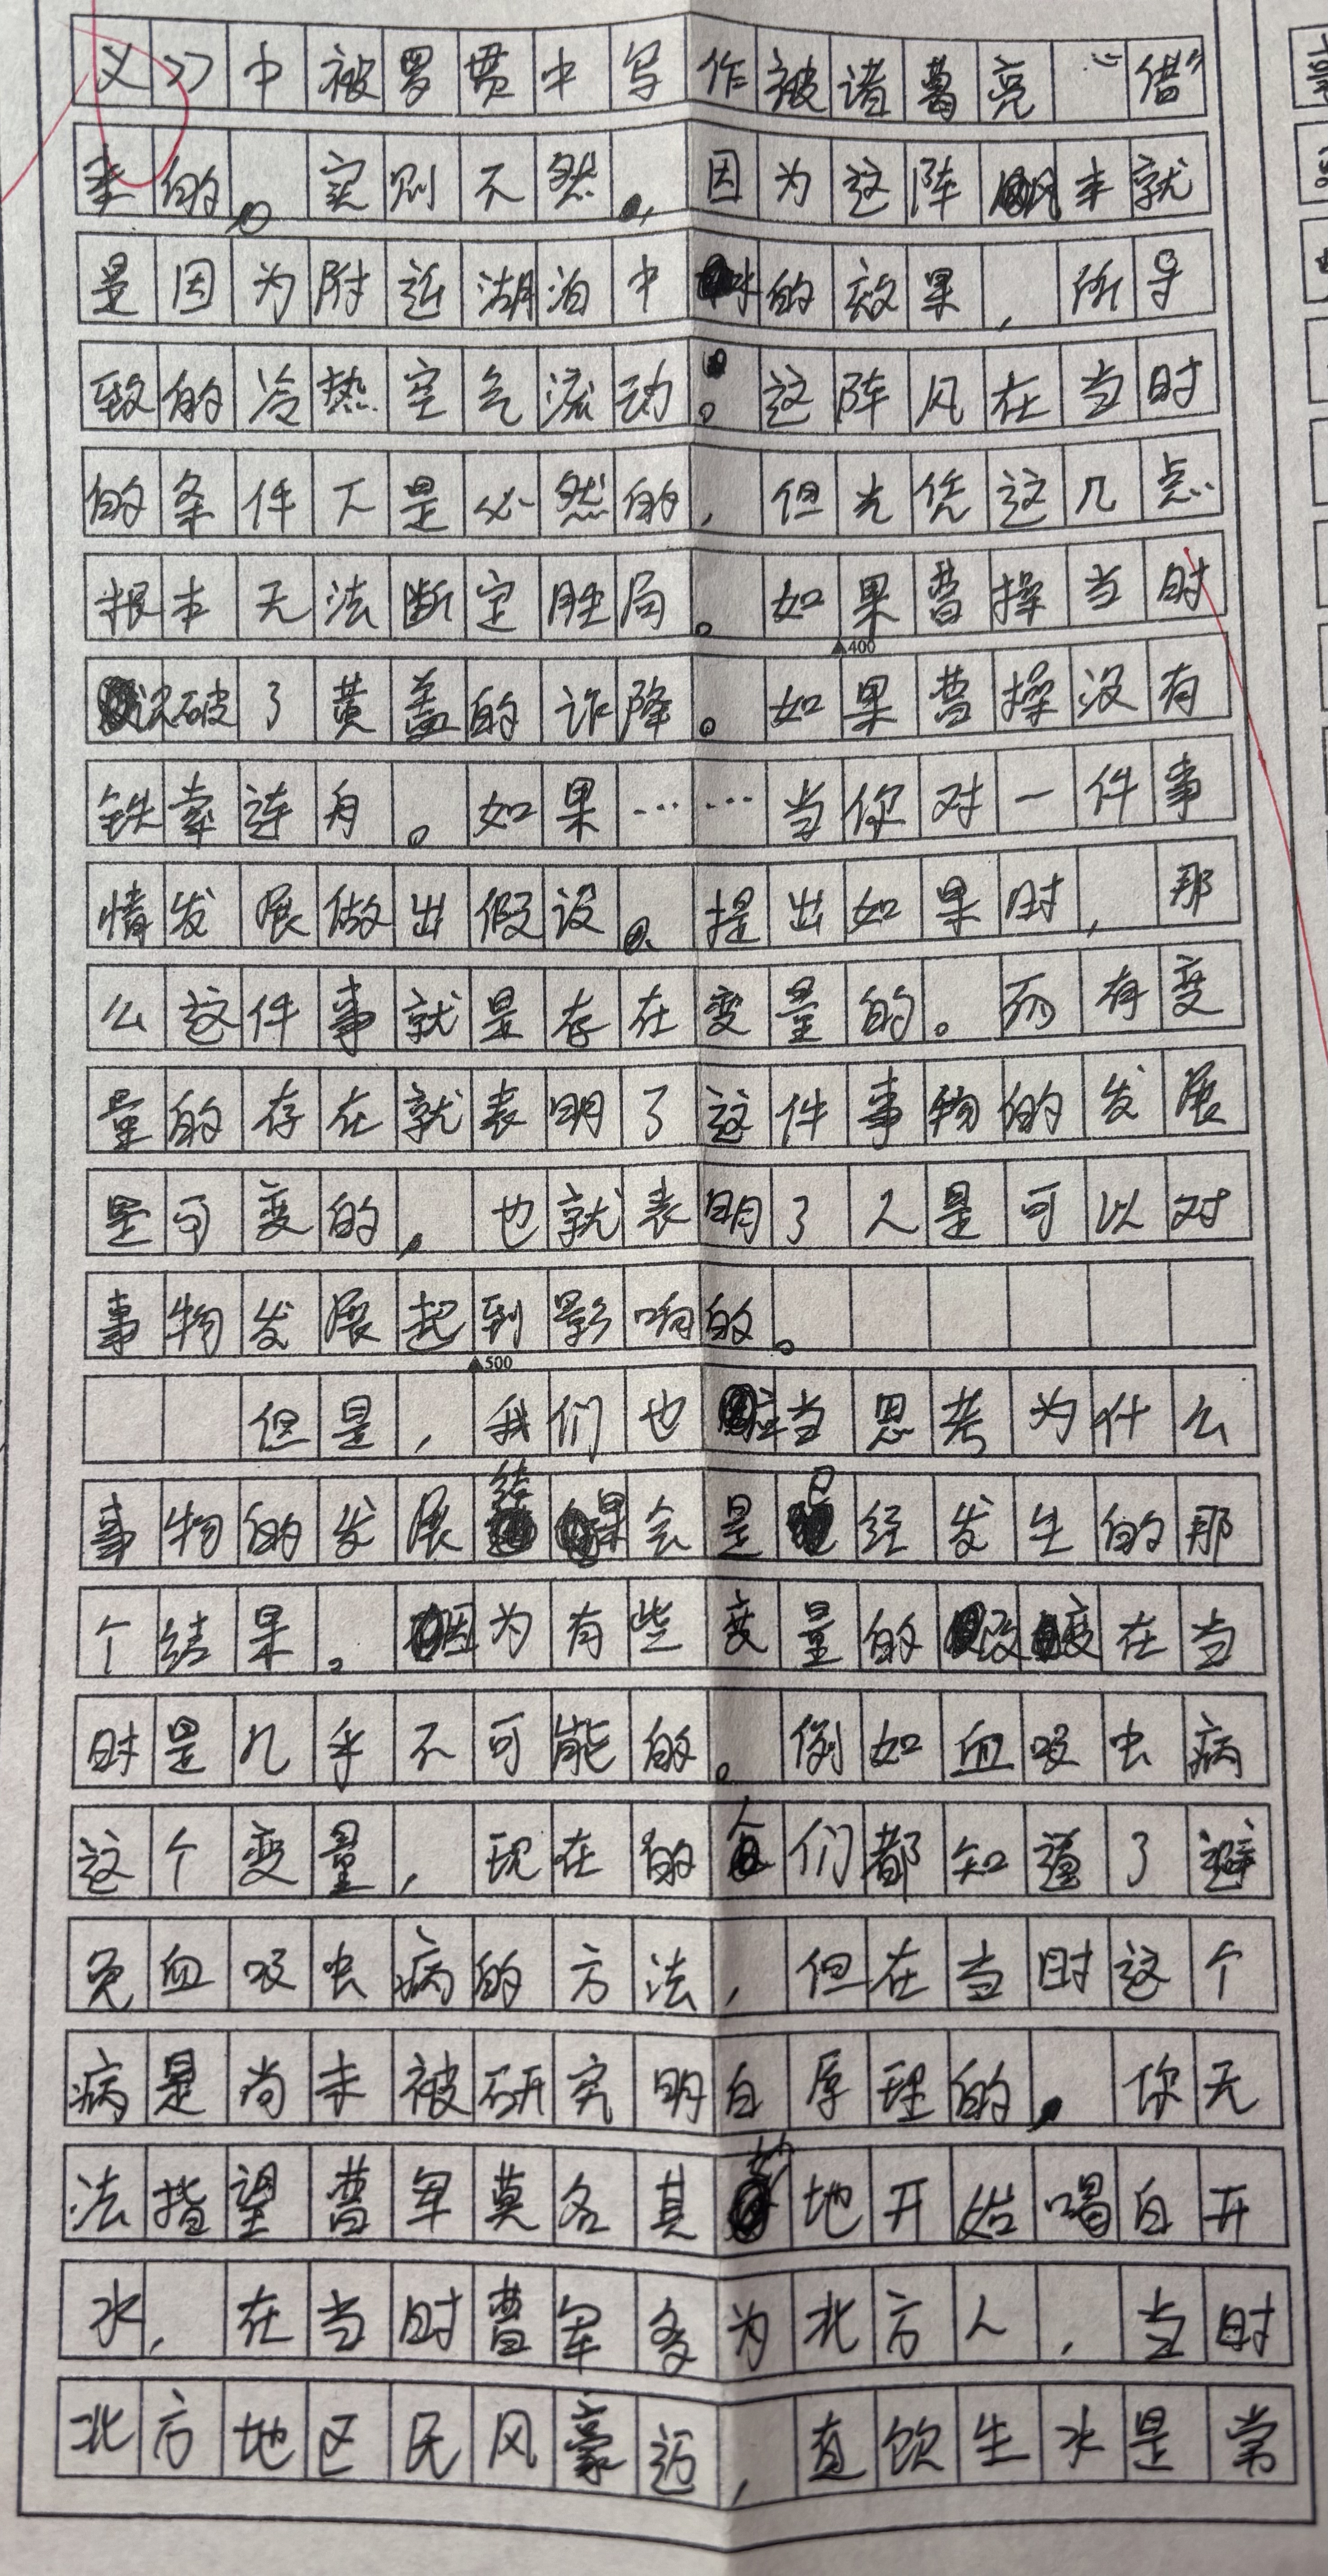 义》中被罗贯中写作被诸葛亮“借”
来的。实则不然，因为这阵风本就
是因为附近湖泊中水的效果，所导
致的冷热空气流动。这阵风在当时
的条件下是必然的，但光凭这几点
根本无法断定胜局。如果曹操当时
400
识破了黄盖的诈降。如果曹操没有
铁索连舟。如果……当你对一件事
情发展做出假设、提出如果时，那
么这件事就是存在变量的。而有变
量的存在就表明了这件事物的发展
是可变的，也就表明了人是可以对
事物发展起到影响的。
500
但是，我们也应当思考为什么
事物的发展结果会是已经发生的那
个结果。因为有些变量的改变在当
时是几乎不可能的。例如血吸虫病
这个变量，现在的人们都知道了避
免血吸虫病的方法，但在当时这个
病是尚未被研究明白原理的，你无
法指望曹军莫名其妙地开始喝白开
水，在当时曹军多为北方人，当时
北方地区民风豪迈，直饮生水是常